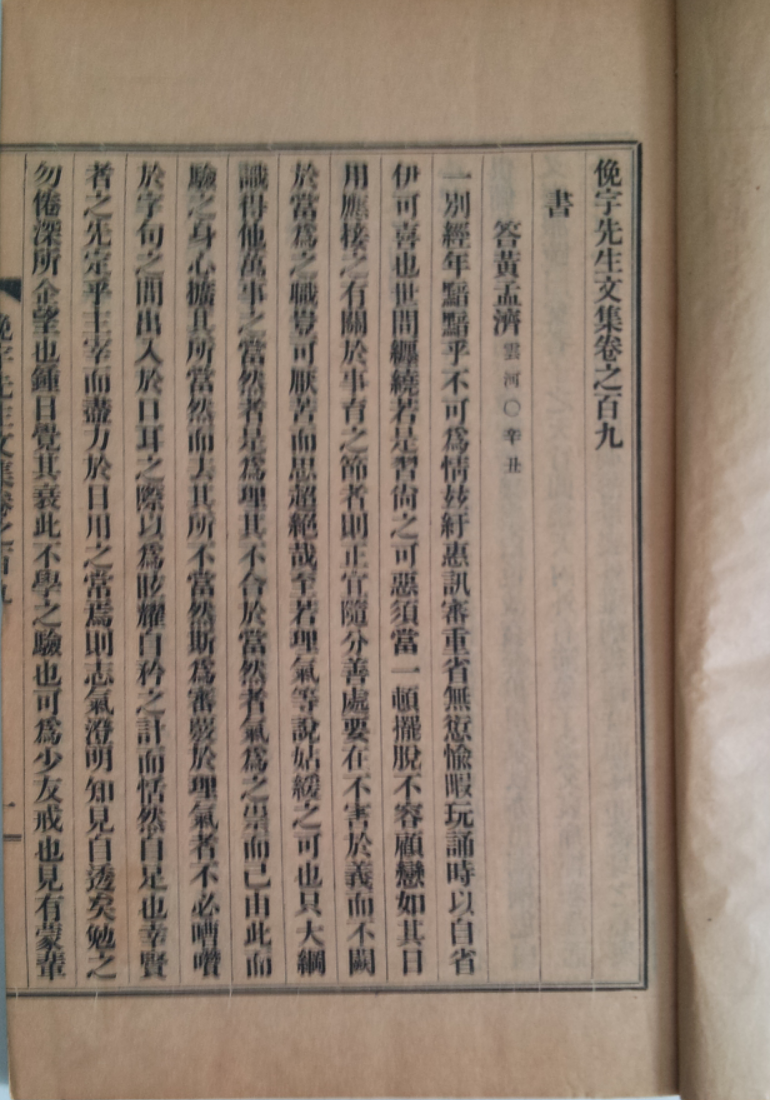 俛宇先生文集卷之百九
書
答黃孟濟雲河○辛丑
一別經年黯黯乎不可爲情玆紆惠訊審重省無愆愉暇玩誦時以自省
伊可喜也世間纏繞若是習尙之可惡須當一頓擺脫不容顧戀如其日
用應接之有關於事育之節者則正宜隨分善處要在不害於義而不闕
於當爲之職豈可厭苦而思超絕哉至若理氣等說姑緩之可也只大綱
識得他萬事之當然者是爲理其不合於當然者氣爲之祟而已由此而
驗之身心擴其所當然而去其所不當然斯爲審嚴於理氣者不必嘈囋
於字句之間出入於口耳之際以爲眩耀自矜之計而恬然自足也幸賢
者之先定乎主宰而盡力於日用之常焉則志氣澄明知見自透矣勉之
勿倦深所企望也鍾日覺其衰此不學之驗也可爲少友戒也見有蒙輩
俛宇先生文集卷之百九
一